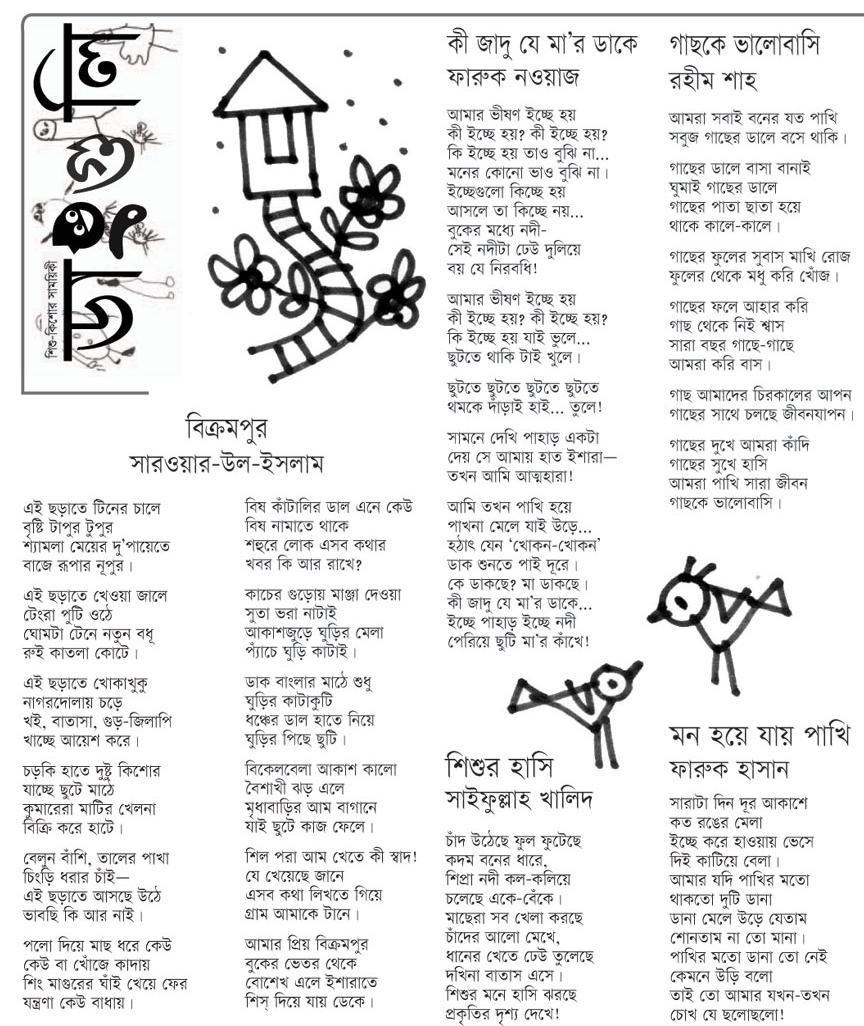 ডাংগুলি
শিশু-কিশোর সাময়িকী
বিক্রমপুর
সারওয়ার-উল-ইসলাম
এই ছড়াতে টিনের চালে
বৃষ্টি টাপুর টুপুর
শ্যামলা মেয়ের দু'পায়েতে
বাজে রূপার নূপুর।
এই ছড়াতে খেওয়া জালে
টেংরা পুটি ওঠে
ঘোমটা টেনে নতুন বধূ
রুই কাতলা কোটে।
এই ছড়াতে খোকাখুকু
নাগরদোলায় চড়ে
খই, বাতাসা, গুড়-জিলাপি
খাচ্ছে আয়েশ করে।
চড়কি হাতে দুষ্টু কিশোর
যাচ্ছে ছুটে মাঠে
কুমারেরা মাটির খেলনা
বিক্রি করে হাটে।
বেলুন বাঁশি, তালের পাখা
চিংড়ি ধরার চাঁই—
এই ছড়াতে আসছে উঠে
ভাবছি কি আর নাই।
পলো দিয়ে মাছ ধরে কেউ
কেউ বা খোঁজে কাদায়
শিং মাগুরের ঘাঁই খেয়ে ফের
যন্ত্রণা কেউ বাধায়।
বিষ কাঁটালির ডাল এনে কেউ
বিষ নামাতে থাকে
শহুরে লোক এসব কথার
খবর কি আর রাখে?
কাচের গুড়োয় মাঞ্জা দেওয়া
সুতা ভরা নাটাই
আকাশজুড়ে ঘুড়ির মেলা
প্যাঁচে ঘুড়ি কাটাই।
ডাক বাংলার মাঠে শুধু
ঘুড়ির কাটাকুটি
ধঞ্চের ডাল হাতে নিয়ে
ঘুড়ির পিছে ছুটি।
বিকেলবেলা আকাশ কালো
বৈশাখী ঝড় এলে
মৃধাবাড়ির আম বাগানে
যাই ছুটে কাজ ফেলে।
শিল পরা আম খেতে কী স্বাদ!
যে খেয়েছে জানে
এসব কথা লিখতে গিয়ে
গ্রাম আমাকে টানে।
আমার প্রিয় বিক্রমপুর
বুকের ভেতর থেকে
বোশেখ এলে ইশারাতে
শিস্ দিয়ে যায় ডেকে।
কী জাদু যে মা'র ডাকে
ফারুক নওয়াজ
আমার ভীষণ ইচ্ছে হয়
কী ইচ্ছে হয়? কী ইচ্ছে হয়?
কি ইচ্ছে হয় তাও বুঝি না...
মনের কোনো ভাও বুঝি না।
ইচ্ছেগুলো কিচ্ছে হয়
আসলে তা কিচ্ছে নয়...
বুকের মধ্যে নদী-
সেই নদীটা ঢেউ দুলিয়ে
বয় যে নিরবধি!
আমার ভীষণ ইচ্ছে হয়
কী ইচ্ছে হয়? কী ইচ্ছে হয়?
কি ইচ্ছে হয় যাই ভুলে...
ছুটতে থাকি টাই খুলে।
ছুটতে ছুটতে ছুটতে ছুটতে
থমকে দাঁড়াই হাই... তুলে!
সামনে দেখি পাহাড় একটা
দেয় সে আমায় হাত ইশারা—
তখন আমি আত্মহারা!
আমি তখন পাখি হয়ে
পাখনা মেলে যাই উড়ে...
হঠাৎ যেন 'খোকন-খোকন'
ডাক শুনতে পাই দূরে।
কে ডাকছে? মা ডাকছে।
কী জাদু যে মা'র ডাকে...
ইচ্ছে পাহাড় ইচ্ছে নদী
পেরিয়ে ছুটি মা'র কাঁখে!
শিশুর হাসি
সাইফুল্লাহ খালিদ
চাঁদ উঠেছে ফুল ফুটেছে
কদম বনের ধারে,
শিপ্রা নদী কল-কলিয়ে
চলেছে একে-বেঁকে।
মাছেরা সব খেলা করছে
চাঁদের আলো মেখে,
ধানের খেতে ঢেউ তুলেছে
দখিনা বাতাস এসে।
শিশুর মনে হাসি ঝরছে
প্রকৃতির দৃশ্য দেখে!
গাছকে ভালোবাসি
রহীম শাহ
আমরা সবাই বনের যত পাখি
সবুজ গাছের ডালে বসে থাকি।
গাছের ডালে বাসা বানাই
ঘুমাই গাছের ডালে
গাছের পাতা ছাতা হয়ে
থাকে কালে-কালে।
গাছের ফুলের সুবাস মাখি রোজ
ফুলের থেকে মধু করি খোঁজ।
গাছের ফলে আহার করি
গাছ থেকে নিই শ্বাস
সারা বছর গাছে-গাছে
আমরা করি বাস।
গাছ আমাদের চিরকালের আপন
গাছের সাথে চলছে জীবনযাপন।
গাছের দুখে আমরা কাঁদি
গাছের সুখে হাসি
আমরা পাখি সারা জীবন
গাছকে ভালোবাসি।
মন হয়ে যায় পাখি
ফারুক হাসান
সারাটা দিন দূর আকাশে
কত রঙের মেলা
ইচ্ছে করে হাওয়ায় ভেসে
দিই কাটিয়ে বেলা।
আমার যদি পাখির মতো
থাকতো দুটি ডানা
ডানা মেলে উড়ে যেতাম
শোনতাম না তো মানা।
পাখির মতো ডানা তো নেই
কেমনে উড়ি বলো
তাই তো আমার যখন-তখন
চোখ যে ছলোছলো!